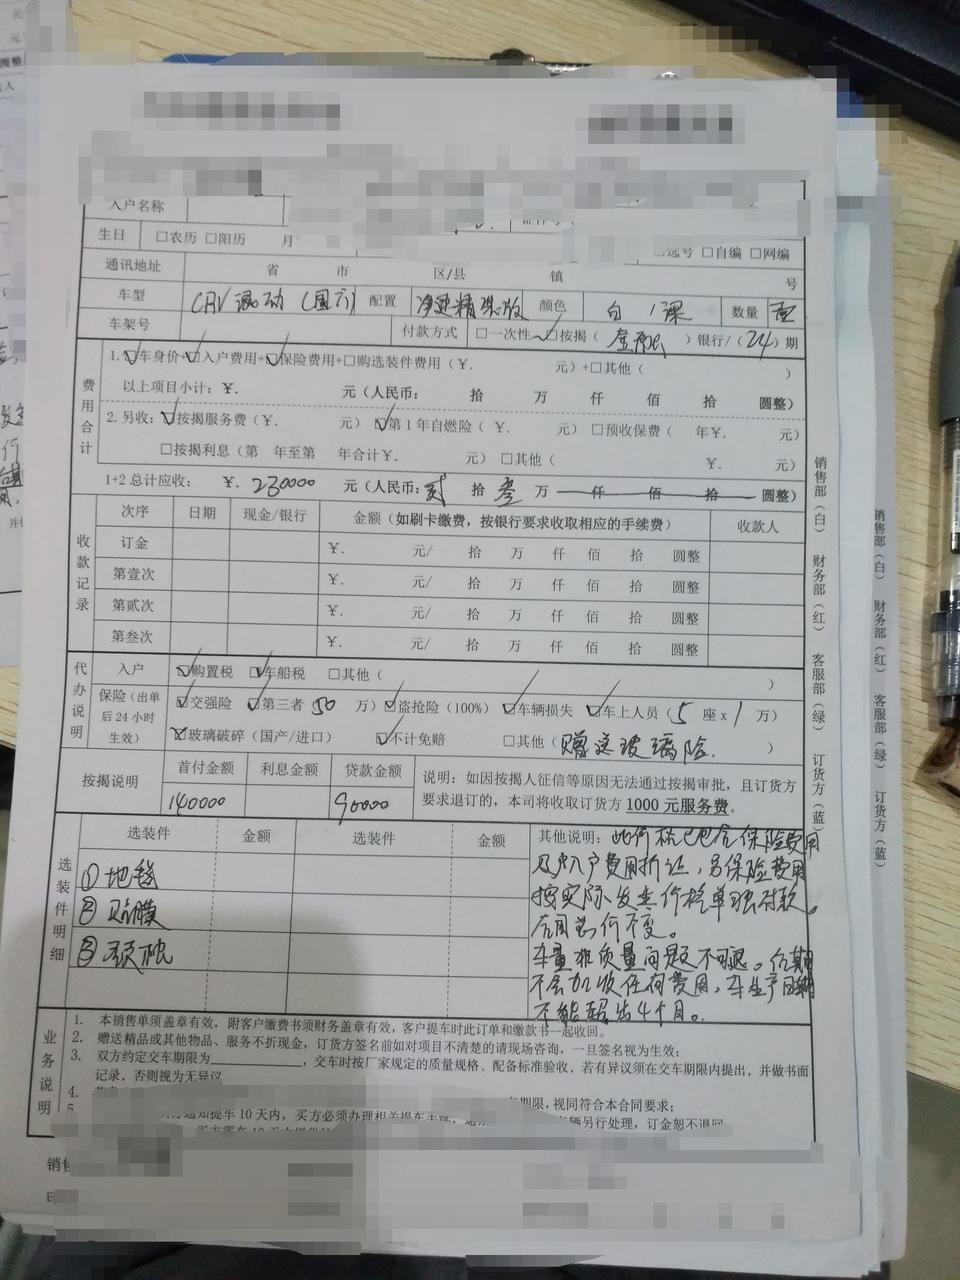 入户名称
生日 □农历 □阳历 月 选号 □自编 □网编
通讯地址 省 市 区/县 镇 号
车型 CRV混动(国六) 配置 净速精英版 颜色 白/黑 数量 壹
车架号 付款方式 □一次性 ☑按揭( )银行/(24)期
费用合计
1. ☑车身价+☑入户费用+☑保险费用+□购选装件费用(￥. 元)+□其他( )
以上项目小计:￥. 元(人民币: 拾 万 仟 佰 拾 圆整)
2. 另收:☑按揭服务费(￥. 元) ☑第1年自燃险(￥. 元) □预收保费( 年￥. 元)
□按揭利息(第 年至第 年合计￥. 元) □其他( ￥. 元)
1+2 总计应收: ￥. 230000 元(人民币: 贰 拾 叁 万 仟 佰 拾 圆整)
收款记录
次序 日期 现金/银行 金额(如刷卡缴费，按银行要求收取相应的手续费) 收款人
订金 ￥. 元/ 拾 万 仟 佰 拾 圆整
第壹次 ￥. 元/ 拾 万 仟 佰 拾 圆整
第贰次 ￥. 元/ 拾 万 仟 佰 拾 圆整
第叁次 ￥. 元/ 拾 万 仟 佰 拾 圆整
代办说明
入户 ☑购置税 ☑车船税 □其他( )
保险(出单后24小时生效) ☑交强险 ☑第三者 50 万) ☑盗抢险(100%) ☑车辆损失 ☑车上人员(5 座x 1 万)
☑玻璃破碎(国产/进口) ☑不计免赔 □其他(赠送玻璃险. )
按揭说明 首付金额 利息金额 贷款金额 说明:如因按揭人征信等原因无法通过按揭审批，且订货方
140000 90000 要求退订的，本司将收取订货方 1000 元服务费。
选装件明细
选装件 金额 选装件 金额
①地毯
②贴膜
③颈枕
其他说明: 此价格已包含保险费用
及入户费用折让，另保险费用
按实际发生价格单独付款。
合同总价不变。
车辆非质量问题不可退。分期
不会加收任何费用，车生产日期
不能超出4个月。
业务说明
1. 本销售单须盖章有效，附客户缴费书须财务盖章有效，客户提车时此订单和缴款书一起收回。
2. 赠送精品或其他物品、服务不折现金，订货方签名前如对项目不清楚的请现场咨询，一旦签名视为生效；
3. 双方约定交车期限为____________，交车时按厂家规定的质量规格、配备标准验收，若有异议须在交车期限内提出，并做书面
记录，否则视为无异议
4. 期限，视同符合本合同要求；
5. 通知提车10天内，买方必须办理相关提车手续， 辆另行处理，订金恕不退回
销售部(白) 财务部(红) 客服部(绿) 订货方(蓝)
销售部(白) 财务部(红) 客服部(绿) 订货方(蓝)